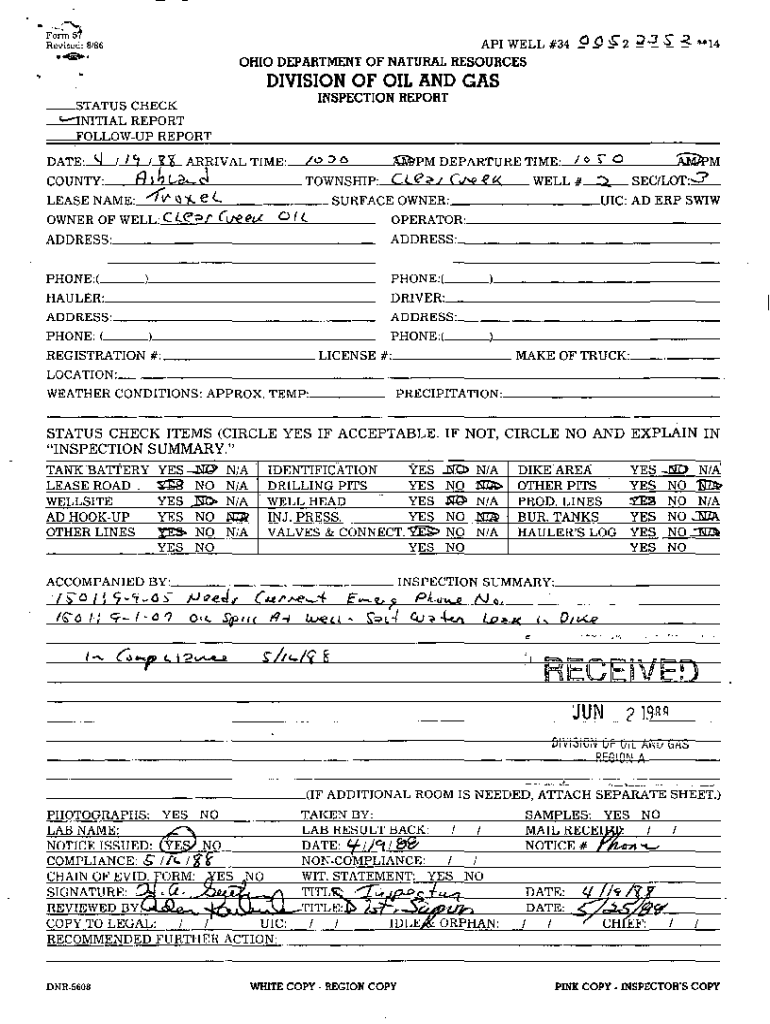 Form 57
Revised: 8/86
API WELL #34 005 2 2352 **14
OHIO DEPARTMENT OF NATURAL RESOURCES
DIVISION OF OIL AND GAS
INSPECTION REPORT
STATUS CHECK
INITIAL REPORT
FOLLOW-UP REPORT
DATE: 4 / 19 / 88 ARRIVAL TIME: 1030 AM PM DEPARTURE TIME: 1050 AM PM
COUNTY: Ashland TOWNSHIP: Clear Creek WELL # 2 SEC/LOT: 3
LEASE NAME: Troxel SURFACE OWNER: UIC: AD ERP SWIW
OWNER OF WELL: Clear Creek Oil OPERATOR:
ADDRESS: ADDRESS:
PHONE:( ) PHONE:( )
HAULER: DRIVER:
ADDRESS: ADDRESS:
PHONE: ( ) PHONE:( )
REGISTRATION #: LICENSE #: MAKE OF TRUCK:
LOCATION:
WEATHER CONDITIONS: APPROX. TEMP: PRECIPITATION:
STATUS CHECK ITEMS (CIRCLE YES IF ACCEPTABLE. IF NOT, CIRCLE NO AND EXPLAIN IN
"INSPECTION SUMMARY."
TANK BATTERY YES NO N/A IDENTIFICATION YES NO N/A DIKE AREA YES NO N/A
LEASE ROAD YES NO N/A DRILLING PITS YES NO N/A OTHER PITS YES NO N/A
WELLSITE YES NO N/A WELL HEAD YES NO N/A PROD. LINES YES NO N/A
AD HOOK-UP YES NO N/A INJ. PRESS. YES NO N/A BUR. TANKS YES NO N/A
OTHER LINES YES NO N/A VALVES & CONNECT. YES NO N/A HAULER'S LOG YES NO N/A
YES NO YES NO YES NO
ACCOMPANIED BY: INSPECTION SUMMARY:
1501:9-9-05 Needs Current Emerg Phone No.
1501:9-1-07 Oil Spill At Well - Salt Water Leak in Dike
In Compliance 5/16/88
RECEIVED
JUN 2 1988
DIVISION OF OIL AND GAS
REGION A
(IF ADDITIONAL ROOM IS NEEDED, ATTACH SEPARATE SHEET.)
PHOTOGRAPHS: YES NO TAKEN BY: SAMPLES: YES NO
LAB NAME: LAB RESULT BACK: / / MAIL RECEIPT: / /
NOTICE ISSUED: YES NO DATE: 4/19/88 NOTICE # Phone
COMPLIANCE: 5/16/88 NON-COMPLIANCE: / /
CHAIN OF EVID. FORM: YES NO WIT. STATEMENT: YES NO
SIGNATURE: TITLE: Inspector DATE: 4/19/88
REVIEWED BY: TITLE: Dist. Superv DATE: 5/25/88
COPY TO LEGAL: / / UIC: / / IDLE & ORPHAN: / / CHIEF: / /
RECOMMENDED FURTHER ACTION:
DNR-5608 WHITE COPY - REGION COPY PINK COPY - INSPECTOR'S COPY